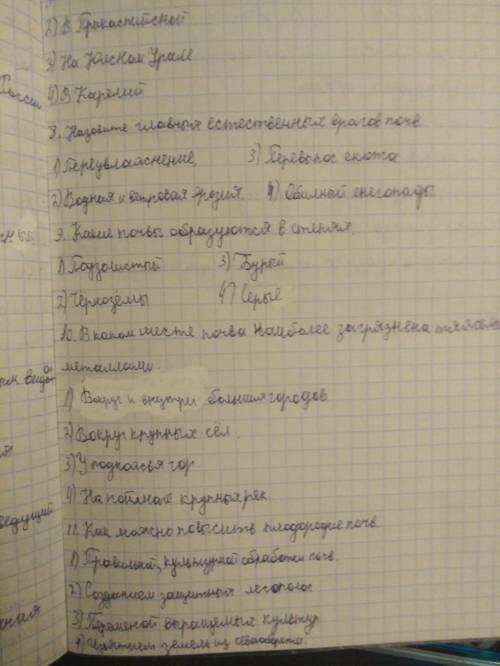 2) В Прикаспийской
3) На Южном Урале
России
4) В Карелий
8. Назовите главных естественных врагов почв
1) Переувлажнение, 3) Перевыпас скота
2) Водная и ветровая эрозия 4) Обилной снегопады
9. Какие почвы образуются в степях.
1) Подзолистый 3) Бурый
2) Чернозёмы 4) Серые
10. В каком месте почва наиболее загрязнена тяжёлым
металлами.
вида
1) Вокруг и внутри больших городов
2) Вокруг крупных сёл.
3) У подножья гор
4) На поймах крупных рек
ведущий
11. Как можно повысить плодородие почв.
1) Правильной, культурной обработки почв.
2) Созданием защитных лесополос
3) Переменой выращемых культур
4) земель из севооборота.